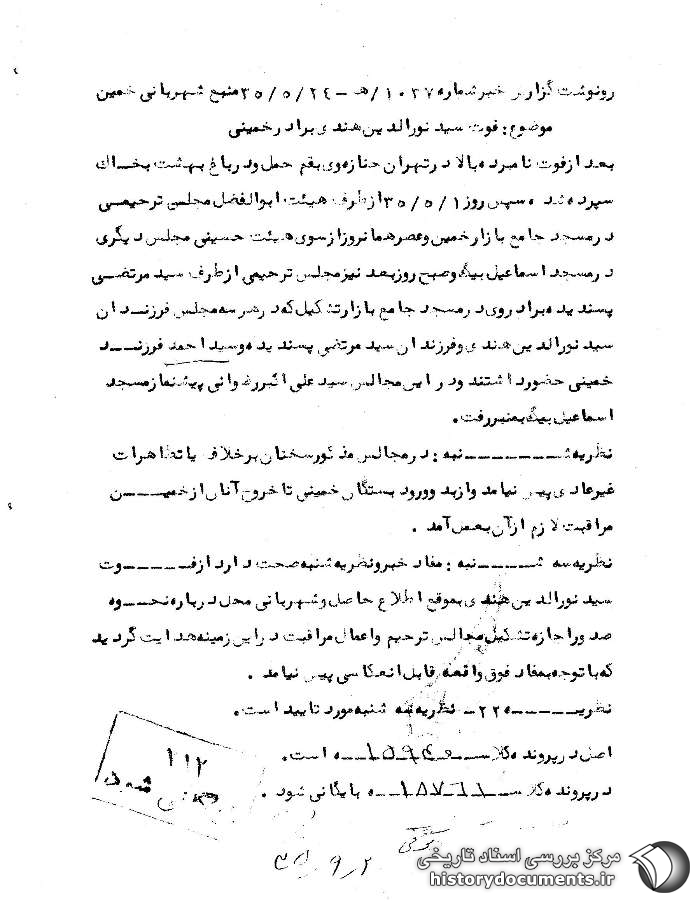 رونوشت گزارش خبر شماره ۱۰۲۷/هـ - ۳۵/۵/۲۴ منبع شهربانی خمین
موضوع: فوت سید نورالدین هندی برادر خمینی
بعد از فوت نامبرده بالا در تهران جنازه وی بقم حمل و در باغ بهشت بخاک
سپرده شد ه سپس روز ۳۵/۵/۱ از طرف هیئت ابوالفضل مجلس ترحیمی
در مسجد جامع بازار خمین و عصر همانروز از سوی هیئت حسینی مجلس دیگری
در مسجد اسماعیل بیگ و صبح روز بعد نیز مجلس ترحیمی از طرف سید مرتضی
پسندیده برادر وی در مسجد جامع بازار تشکیل که در هر سه مجلس فرزندان
سید نورالدین هندی و فرزندان سید مرتضی پسندیده و سید احمد فرزند
خمینی حضور داشتند و در این مجالس سید علی اکبر پیشنماز مسجد
اسماعیل بیگ بمنبر رفت.
نظریه شنبه: در مجالس مذکور سخنان برخلاف یا تظاهرات
غیر عادی پیش نیامد و از بدو ورود بستگان خمینی تا خروج آنان از خمین
مراقبت لازم از آن بعمل آمد .
نظریه سه شنبه: مفاد خبر و نظریه شنبه صحت دارد از فوت
سید نورالدین هندی بموقع اطلاع حاصل و شهربانی محل درباره نحوه
صدور اجازه تشکیل مجالس ترحیم و اعمال مراقبت در این زمینه هدایت گردید
که با توجه بمفاد فوق واقعه قابل انعکاسی پیش نیامد .
نظریه ۲۲ـ نظریه سه شنبه مورد تایید است.
اصل در پرونده کلاسه است.
در پرونده کلاسه بایگانی شود .
۱۱۲
شد
۳۵/۹/۲
مرکز بررسی اسناد تاریخی
historydocuments.ir